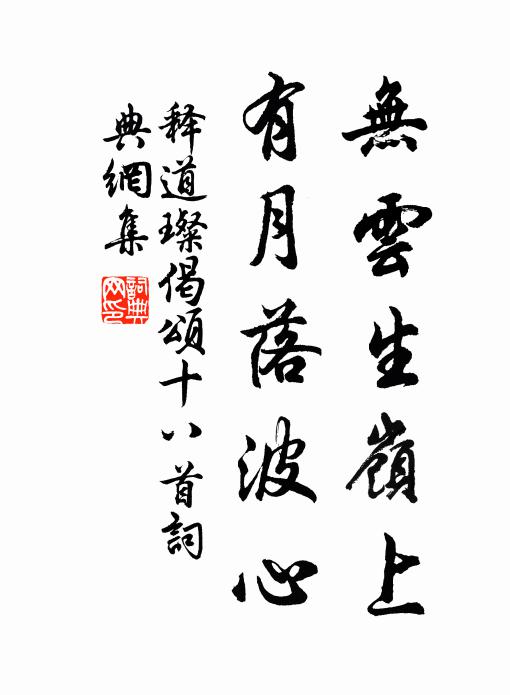 無雲生嶺上
有月落波心
释道璨偈頌十八首詞
典網集
詞典網印